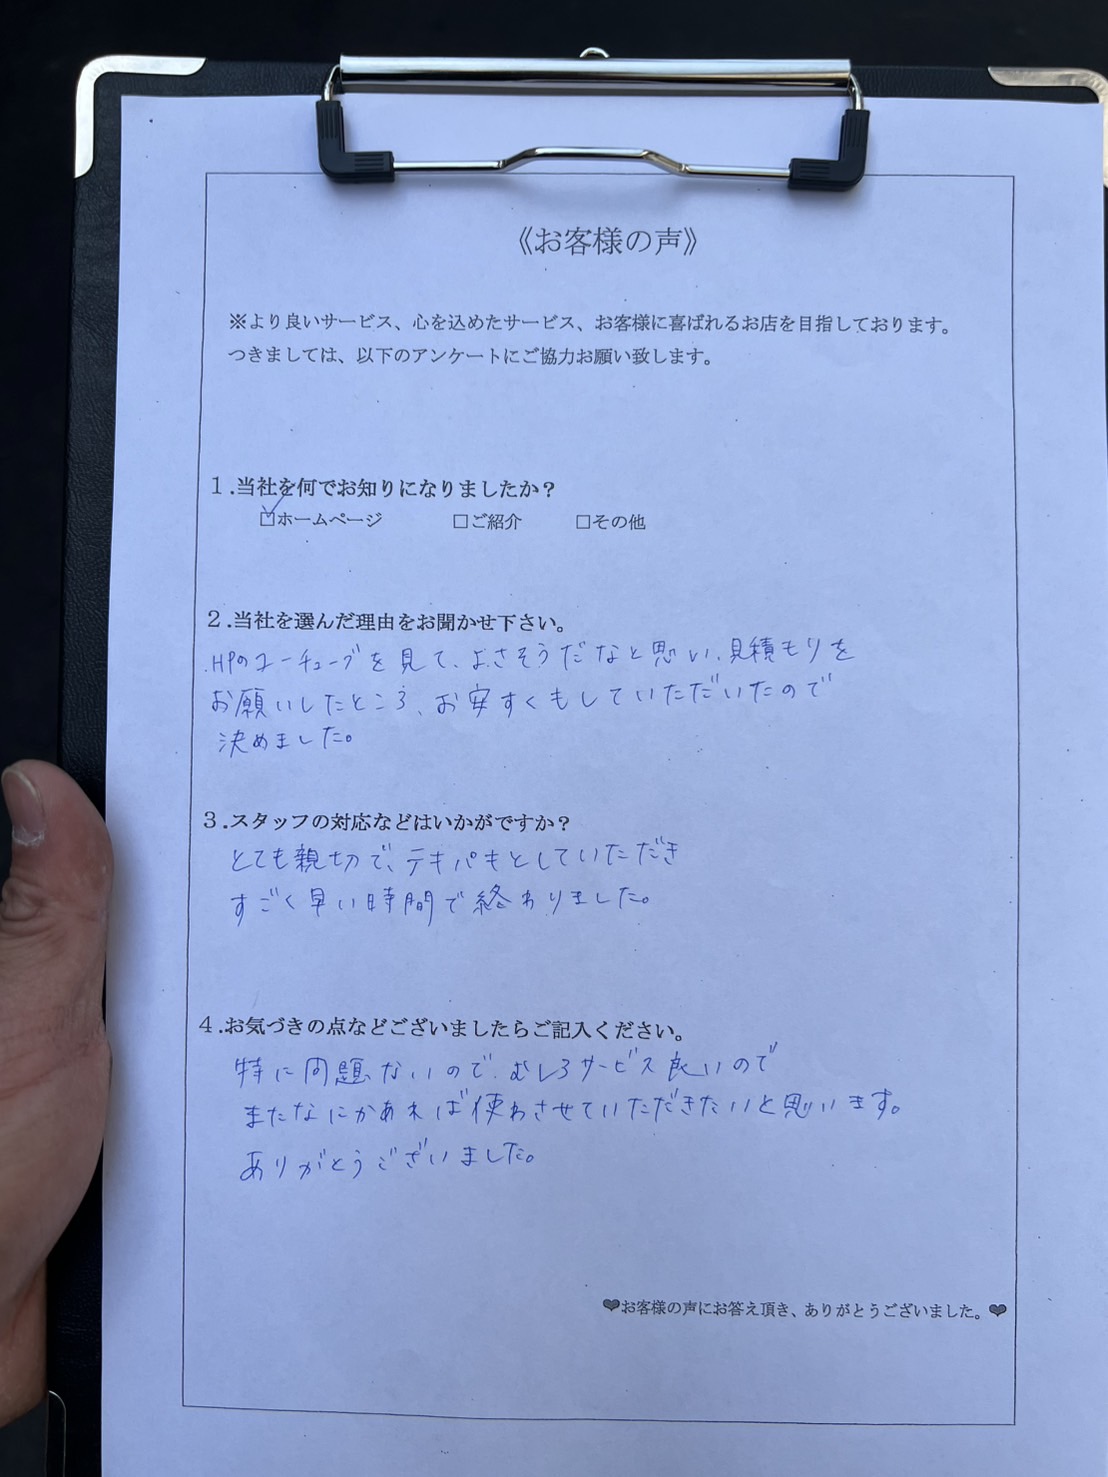 《お客様の声》
※より良いサービス、心を込めたサービス、お客様に喜ばれるお店を目指しております。
つきましては、以下のアンケートにご協力お願い致します。
1.当社を何でお知りになりましたか？
☑ホームページ □ご紹介 □その他
2.当社を選んだ理由をお聞かせ下さい。
HPのユーチューブを見て、よさそうだなと思い、見積もりを
お願いしたところ、お安すくもしていただいたので
決めました。
3.スタッフの対応などはいかがですか？
とても親切で、テキパキとしていただき
すごく早い時間で終わりました。
4.お気づきの点などございましたらご記入ください。
特に問題ないので、むしろサービス良いので
またなにかあれば使わさせていただきたいと思います。
ありがとうございました。
❤お客様の声にお答え頂き、ありがとうございました。❤